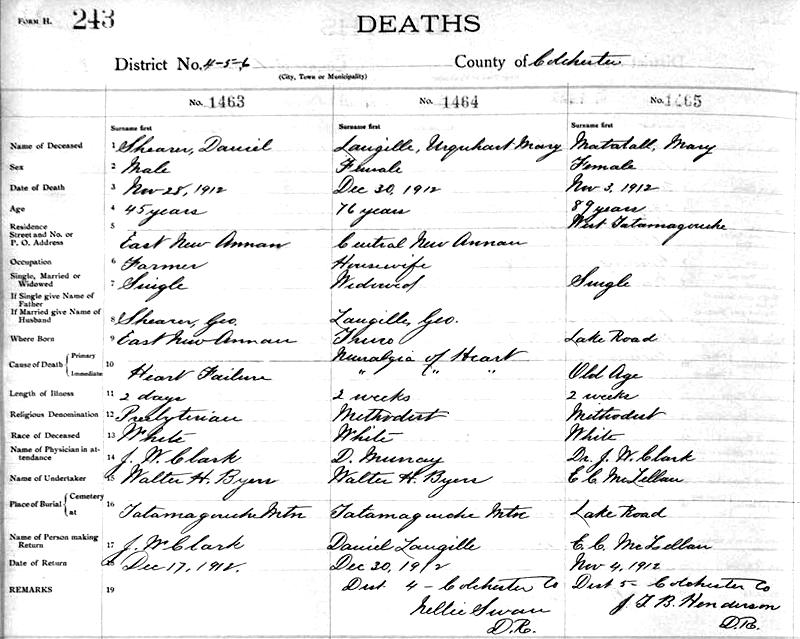 FORM H. 243 DEATHS
District No. 4-5-6 County of Colchester
(City, Town or Municipality)
No. 1463 No. 1464 No. 1465
Surname first Surname first Surname first
Name of Deceased 1 Shearer, Daniel Langille, Urquhart Mary Matatall, Mary
Sex 2 Male Female Female
Date of Death 3 Nov 28, 1912 Dec 30, 1912 Nov 3, 1912
Age 4 45 years 76 years 89 years
Residence Street and No. or P. O. Address 5 East New Annan Central New Annan West Tatamagouche
Occupation 6 Farmer Housewife
Single, Married or Widowed 7 Single Widowed Single
If Single give Name of Father
If Married give Name of Husband 8 Shearer, Geo. Langille, Geo.
Where Born 9 East New Annan Truro Lake Road
Cause of Death { Primary Immediate 10 Heart Failure Nuralgia of Heart " " " Old Age
Length of Illness 11 2 days 2 weeks 2 weeks
Religious Denomination 12 Presbyterian Methodist Methodist
Race of Deceased 13 White White White
Name of Physician in attendance 14 J. W. Clark D. Murray Dr. J. W. Clark
Name of Undertaker 15 Walter H. Byers Walter H. Byers E C McLellan
Place of Burial { Cemetery at 16 Tatamagouche Mtn Tatamagouche Mtn Lake Road
Name of Person making Return 17 J. W Clark Daniel Langille E. C. McLellan
Date of Return 18 Dec 17, 1912. Dec 30, 1912 Nov 4, 1912
REMARKS 19 Dist 4 - Colchester Co Dist 5 - Colchester Co
Nellie Swan J. T. B. Henderson
D.R. D.R.